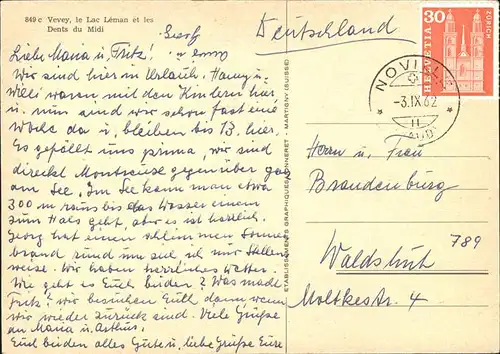 849 c Vevey, le Lac Léman et les
Dents du Midi
Deutschland
HELVETIA
30
ZÜRICH
NOVILLE
-3.IX.62
11
(VAUD)
Liebe Maria u. Fritz!
Wir sind hier in Urlaub. Hanny u.
Willi waren mit den Kindern hier
u. nun sind wir schon fast eine
Woche da u. bleiben bis 13. hier.
Es gefällt uns prima, wir sind
direkt Montreuse gegenüber ganz
am See. Im See kann man etwa
300 m raus bis das Wasser einem
zum Hals geht, aber es ist herrlich.
Georg hat einen schlimmen Sonnen
brand und nur stellen
weise. Wir haben herrliches Wetter.
Wie geht es Euch beiden? Was macht
Fritz? Wir besuchen Euch dann wenn
wir wieder zurück sind. Viele Grüße
an Maria u. Arthur.
Euch beiden alles Gute u. liebe Grüße Eure
Georg u. Emmy
ETABLISSEMENTS GRAPHIQUES PERROCHET - MARTIGNY (SUISSE)
Herrn u. Frau
Brandenburg
789
Waldshut
Moltkestr. 4